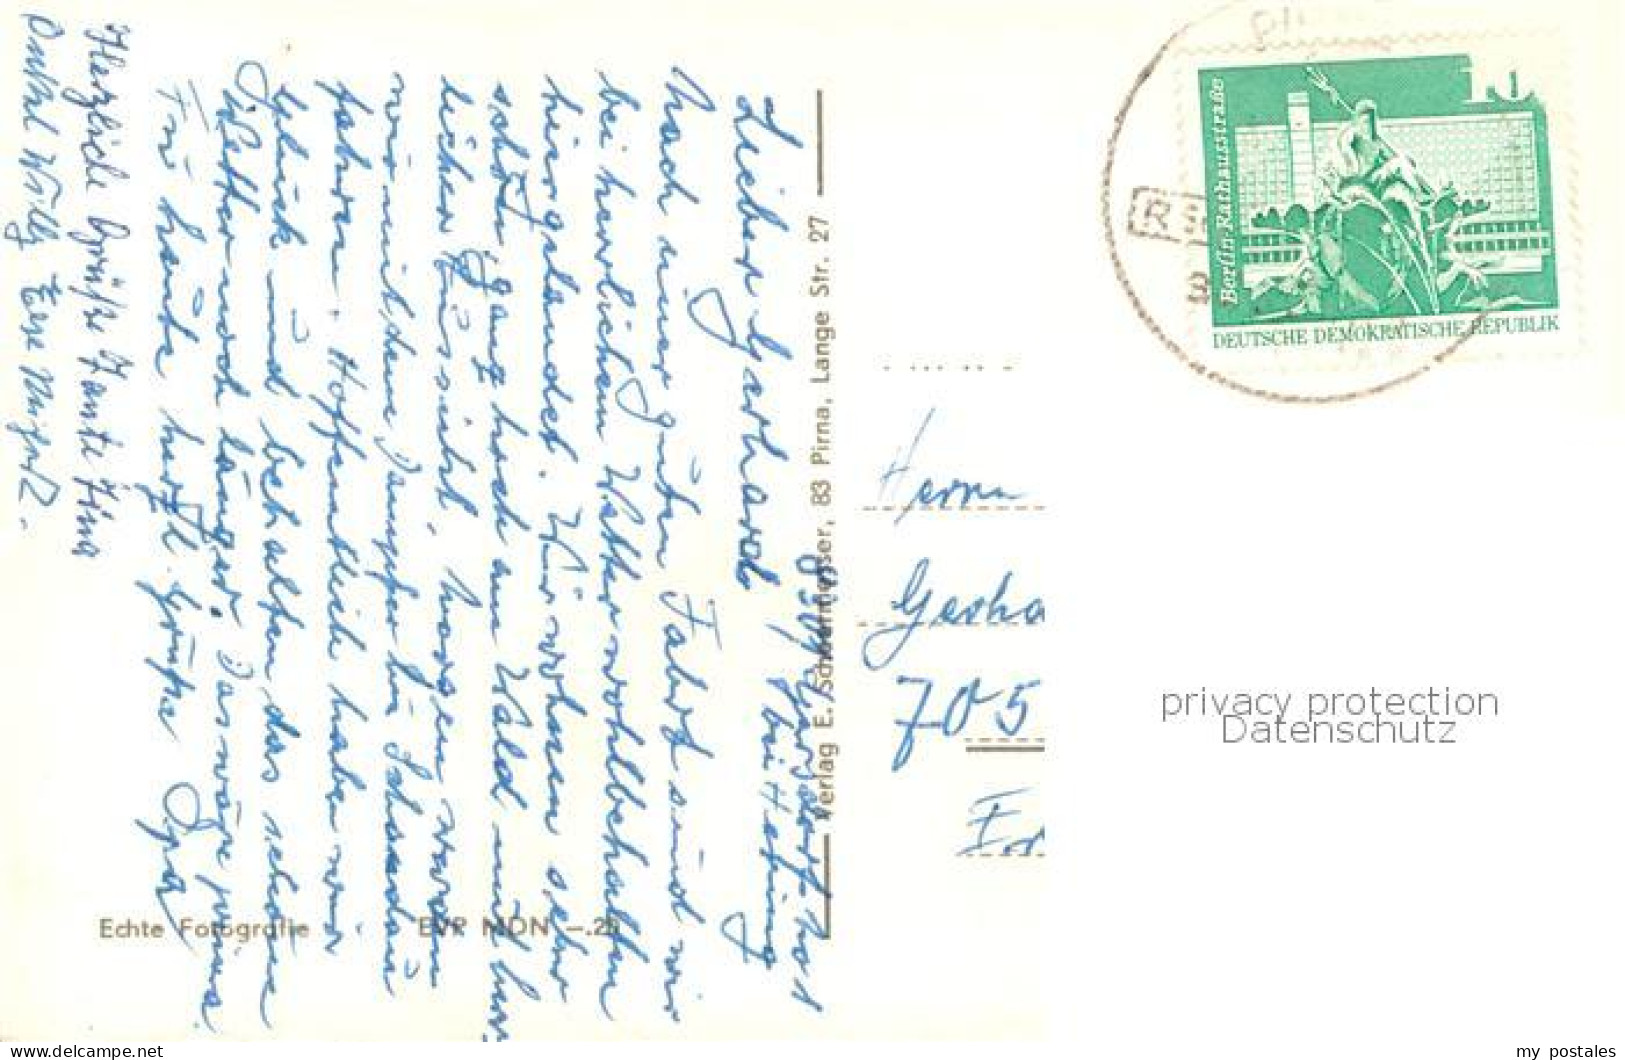 8309 Gorsdorf Post
bei Hetzing
Lieber Gerhard
Nach einer guten Fahrt sind wir
bei herrlichem Wetter wohlbehalten
hier gelandet. Wir wohnen sehr
schön, ganz hoch am Wald mit herr
licher Aussicht. Morgen wollen
wir mit dem Dampfer bis Schandau
fahren. Hoffentlich haben wir
Glück und behalten das schöne
Wetter noch länger. Das wäre prima
Für heute herzl. Grüße
Herzliche Grüße Tante
Onkel Willy
Verlag E. Schwenmesser, 83 Pirna, Lange Str. 27
Echte Fotografie
EVP MDN -.20
Herrn
Gerha
705
Berlin-Rathausstraße
DEUTSCHE DEMOKRATISCHE REPUBLIK
privacy protection
Datenschutz
https://www.delcampe.net
my_postales